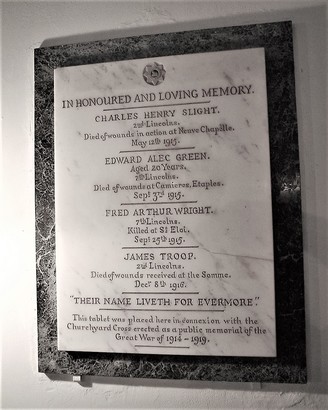 IN HONOURED AND LOVING MEMORY.
CHARLES HENRY SLIGHT.
2nd Lincolns.
Died of wounds in action at Neuve Chapelle.
May 12th 1915.
EDWARD ALEC GREEN.
Aged 20 Years.
7th Lincolns.
Died of wounds at Camieros, Etaples.
Sept 3rd 1915.
FRED ARTHUR WRIGHT.
7th Lincolns.
Killed at St Eloi.
Sept 25th 1915.
JAMES TROOP.
2nd Lincolns.
Died of wounds received at the Somme.
Decr 8th 1916.
"THEIR NAME LIVETH FOR EVERMORE".
This tablet was placed here in connexion with the
Churchyard Cross erected as a public memorial of the
Great War of 1914 - 1919.